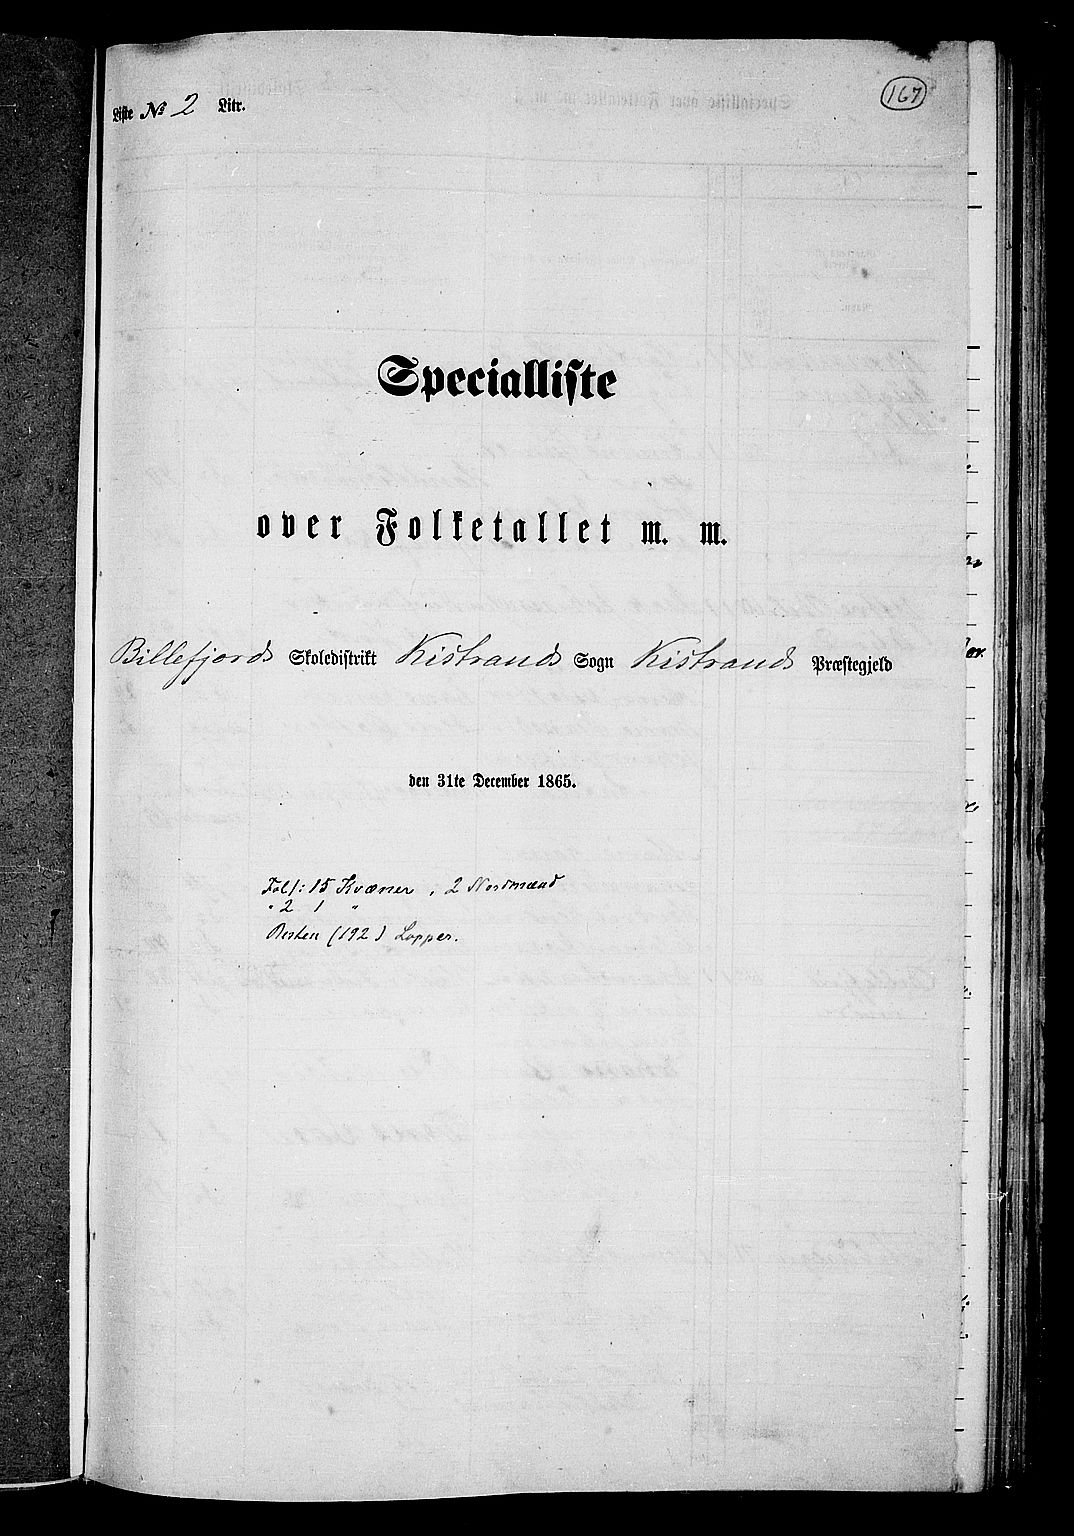 Liste No 2 Litr.
167
Specialliste
over Folketallet m. m.
Billefjords Skoledistrikt Kistrands Sogn Kistrands Præstegjeld
den 31te December 1865.
Fol 1: 15 Kvæner, 2 Nordmænd
" 2 1 "
Resten (192) Lapper.